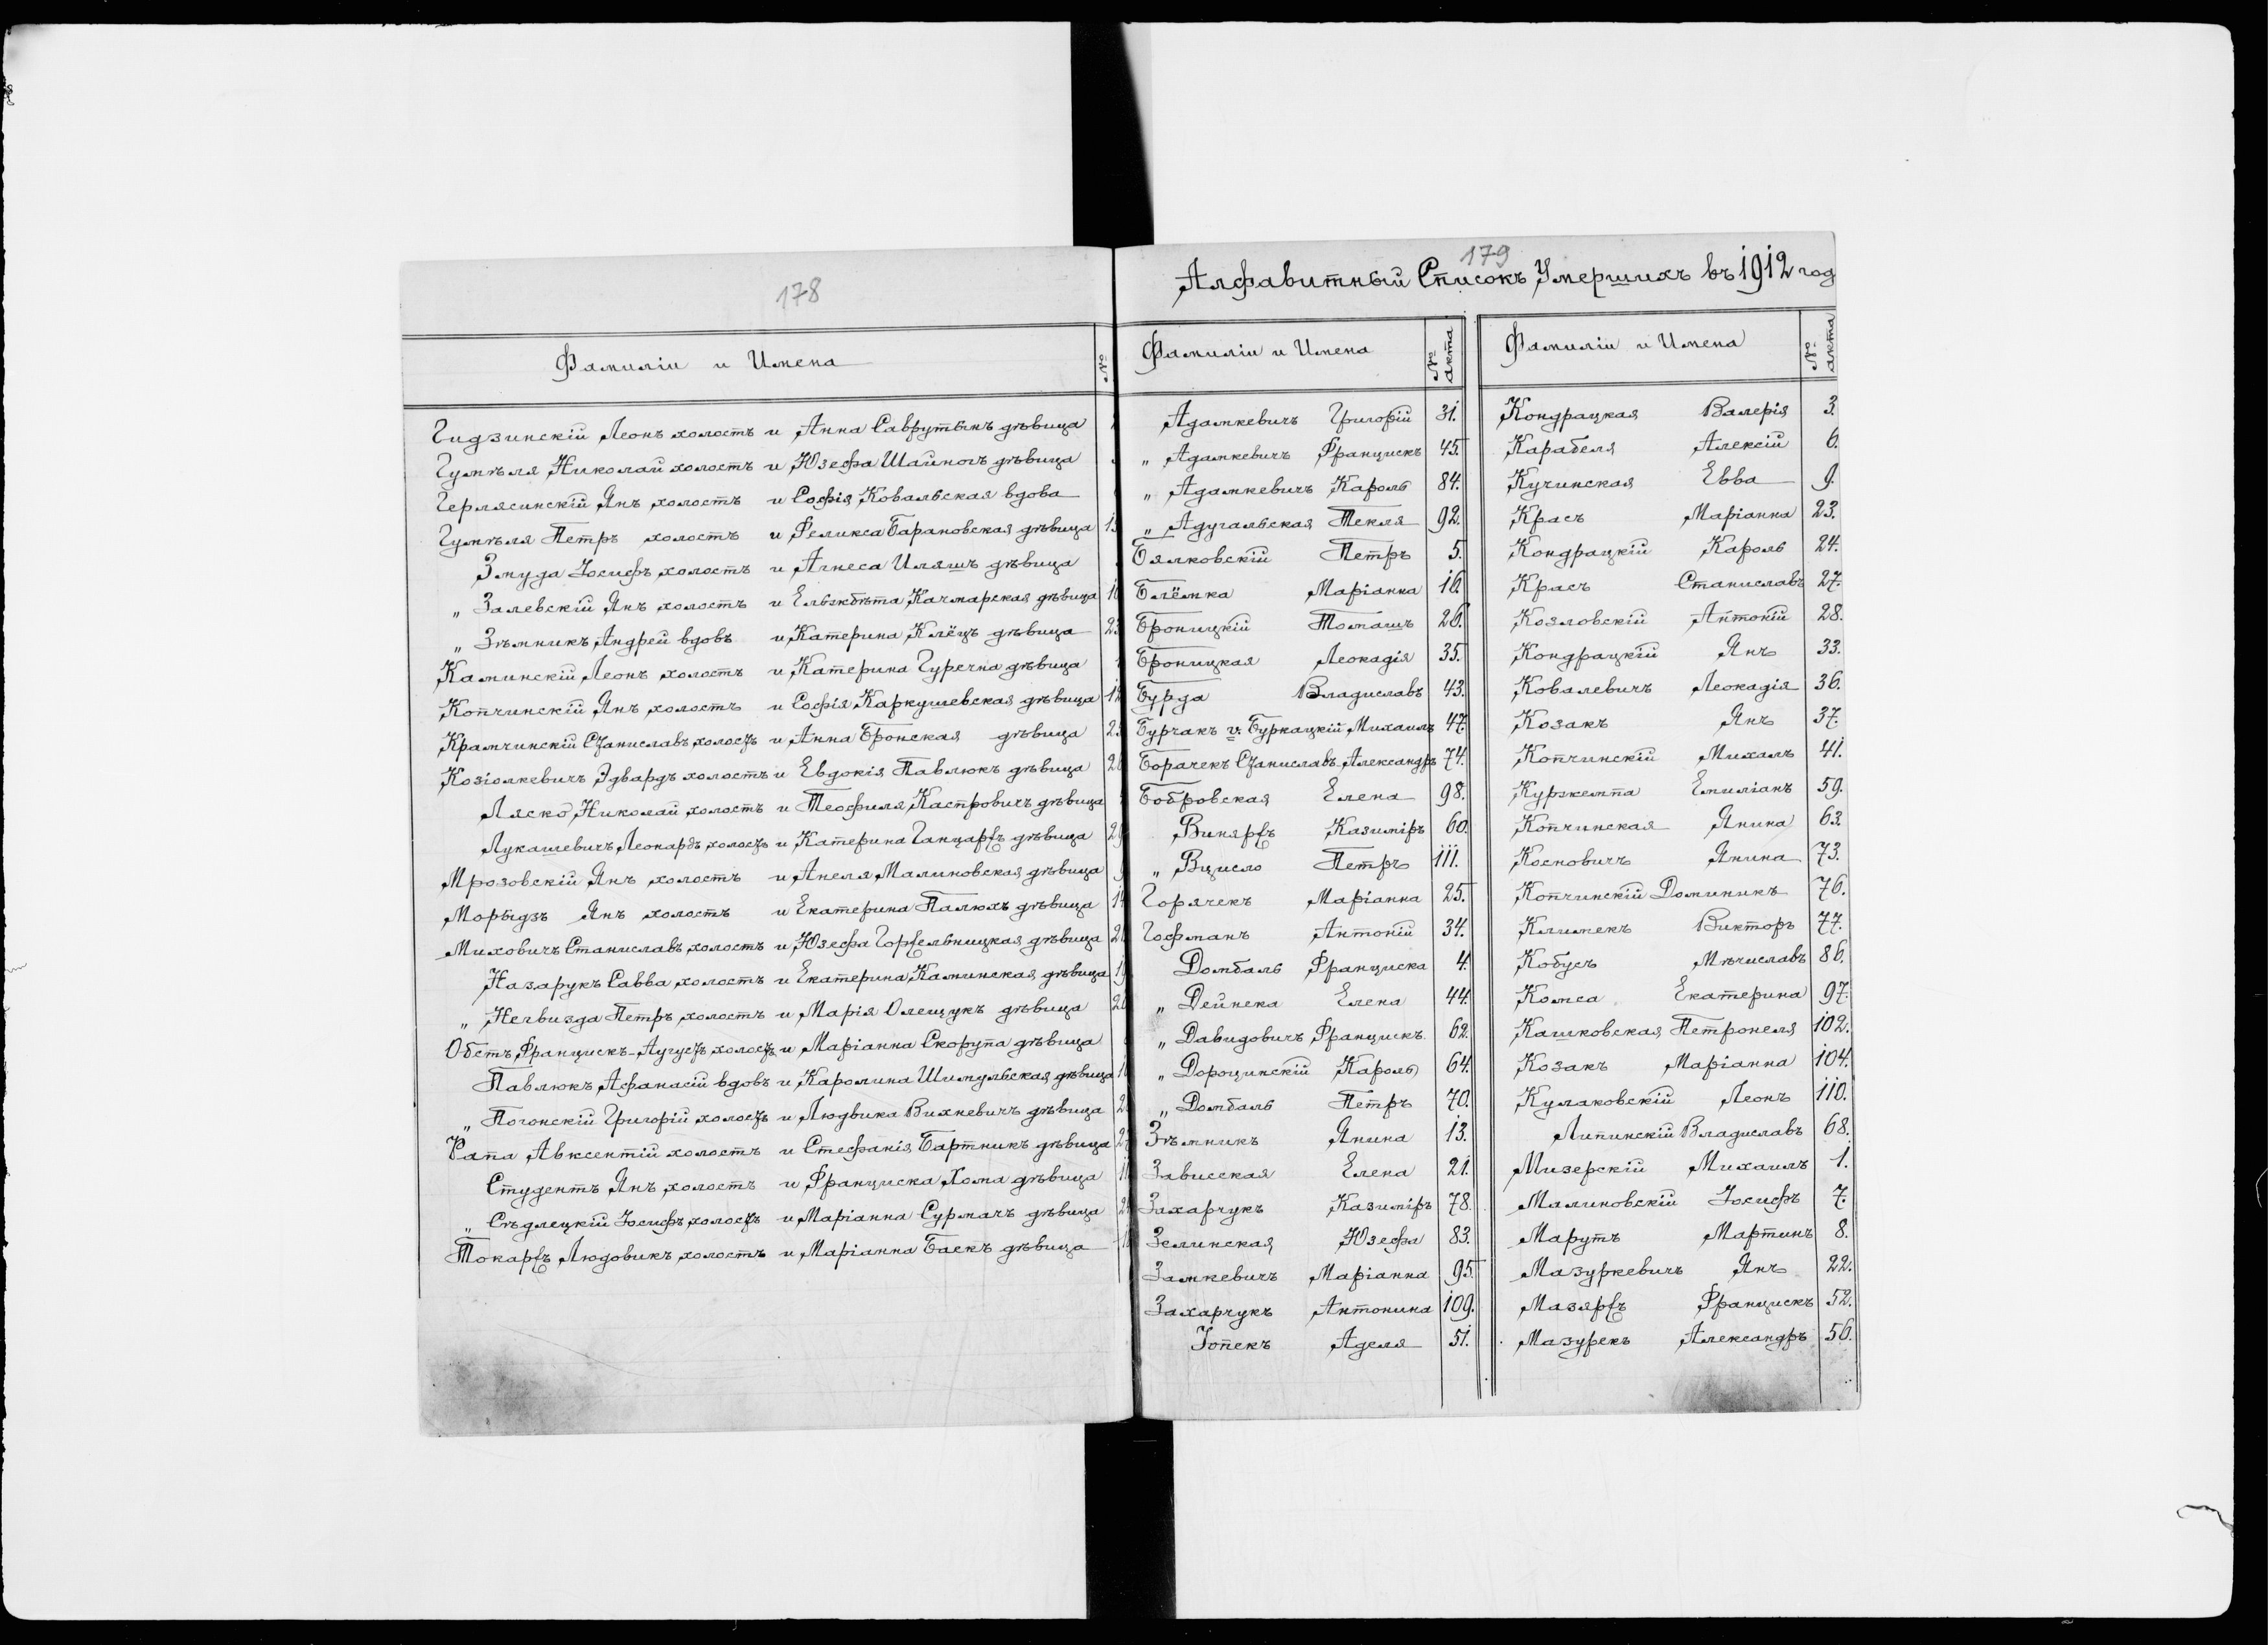 178
Фамиліи и Имена
№
Гидзинскій Леонъ холостъ и Анна Саврутынъ дѣвица
Гумѣля Николай холостъ и Юзефа Шайногъ дѣвица
Герлясинскій Янъ холостъ и Софія Ковальская вдова
Гумѣля Петръ холостъ и Феликса Барановская дѣвица
Змуда Іосифъ холостъ и Агнеса Иляшъ дѣвица
„ Залевскій Янъ холостъ и Ельжбѣта Качмарская дѣвица
„ Зѣмникъ Андрей вдовъ и Катерина Клёцъ дѣвица
Каминскій Леонъ холостъ и Катерина Гуречна дѣвица
Копчинскій Янъ холостъ и Софія Каркушевская дѣвица
Крамчинскій Станиславъ холостъ и Анна Бронская дѣвица
Козіолкевичъ Эдвардъ холостъ и Евдокія Павлюкъ дѣвица
Ляско Николай холостъ и Теофиля Каспровичъ дѣвица
Лукашевичъ Леонардъ холостъ и Катерина Ганцаржъ дѣвица
Мрозовскій Янъ холостъ и Анеля Малиновская дѣвица
Морыдзъ Янъ холостъ и Екатерина Палюхъ дѣвица
Миховичъ Станиславъ холостъ и Юзефа Горжельницкая дѣвица
Назарукъ Савва холостъ и Екатерина Каминская дѣвица
„ Негвизда Петръ холостъ и Марія Олещукъ дѣвица
Обстъ Францискъ-Аугустъ холостъ и Маріанна Скорупа дѣвица
Павлюкъ Афанасій вдовъ и Каролина Шимульская дѣвица
„ Погонскій Григорій холостъ и Людвика Вихневичъ дѣвица
Рапа Авксентій холостъ и Стефанія Бартникъ дѣвица
Студентъ Янъ холостъ и Франциска Хома дѣвица
„ Сѣдлецкій Іосифъ холостъ и Маріанна Сурмачъ дѣвица
Токаржъ Людовикъ холостъ и Маріанна Баскъ дѣвица
179
Алфавитный Списокъ Умершихъ въ 1912 год
Фамиліи и Имена
№ акта
Адамкевичъ Григорій 31.
„ Адамкевичъ Францискъ 45.
„ Адамкевичъ Кароль 84.
„ Адугальская Текля 92.
Бялковскій Петръ 5.
Блёмка Маріанна 16.
Броницкій Томашъ 26.
Броницкая Леокадія 35.
Бурда Владиславъ 43.
Бурчакъ v. Буркацкій Михаилъ 47.
Борачекъ Станиславъ-Александръ 74.
Бобровская Елена 98.
Виняржъ Казиміръ 60.
„ Вцисло Петръ 111.
Горячекъ Маріанна 25.
Гофманъ Антоній 34.
Домбаль Франциска 4.
„ Дейнека Елена 44.
„ Давидовичъ Францискъ 62.
„ Дорощинскій Кароль 64.
„ Домбаль Петръ 70.
Зѣмникъ Янина 13.
Зависская Елена 21.
Захарчукъ Казиміръ 78.
Зелинская Юзефа 83.
Замкевичъ Маріанна 95.
Захарчукъ Антонина 109.
Іопекъ Аделя 51.
Фамиліи и Имена
№ акта
Кондрацкая Валерія 3.
Карабеля Алексій 6.
Кучинская Евва 9.
Красъ Маріанна 23.
Кондрацкій Кароль 24.
Красъ Станиславъ 27.
Козловскій Антоній 28.
Кондрацкій Янъ 33.
Ковалевичъ Леокадія 36.
Козакъ Янъ 37.
Копчинскій Михалъ 41.
Куржемпа Емиліанъ 59.
Копчинская Янина 63.
Косновичъ Янина 73.
Копчинскій Доминикъ 76.
Климекъ Викторъ 77.
Кобусъ Мѣчиславъ 86.
Комса Екатерина 97.
Кашковская Петронеля 102.
Козакъ Маріанна 104.
Кулаковскій Леонъ 110.
Липинскій Владиславъ 68.
Мизерскій Михаилъ 1.
Малиновскій Іосифъ 7.
Марутъ Мартинъ 8.
Мазуркевичъ Янъ 22.
Мазяржъ Францискъ 52.
Мазурекъ Александръ 56.